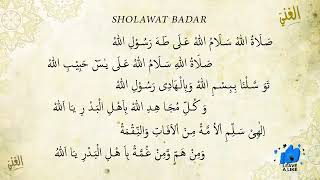 SHOLAWAT BADAR
صَلَاةُ اللهْ سَلَامُ اللهْ عَلَى طٰهَ رَسُوْلِ اللهْ
صَلَاةُ اللهْ سَلَامُ اللهْ عَلَى يٰسٓ حَبِيْبِ اللهْ
تَوَ سَّلْنَا بِبِسْمِ اللهْ وَبِالْهَادِى رَسُوْلِ اللهْ
وَ كُلِّ مُجَا هِدِ اللهْ بِاَهْلِ الْبَدْ رِ يَا اَللهْ
اِلٰهِىْ سَلِّمِ اْلاُ مَّةْ مِنَ اْلآفَاتِ وَالنِّقْمَةْ
وَمِنْ هَمٍّ وَّمِنْ غُمَّةْ بِأَ هْلِ الْبَدْرِ يَا اَللهْ
LEAVE
A LIKE